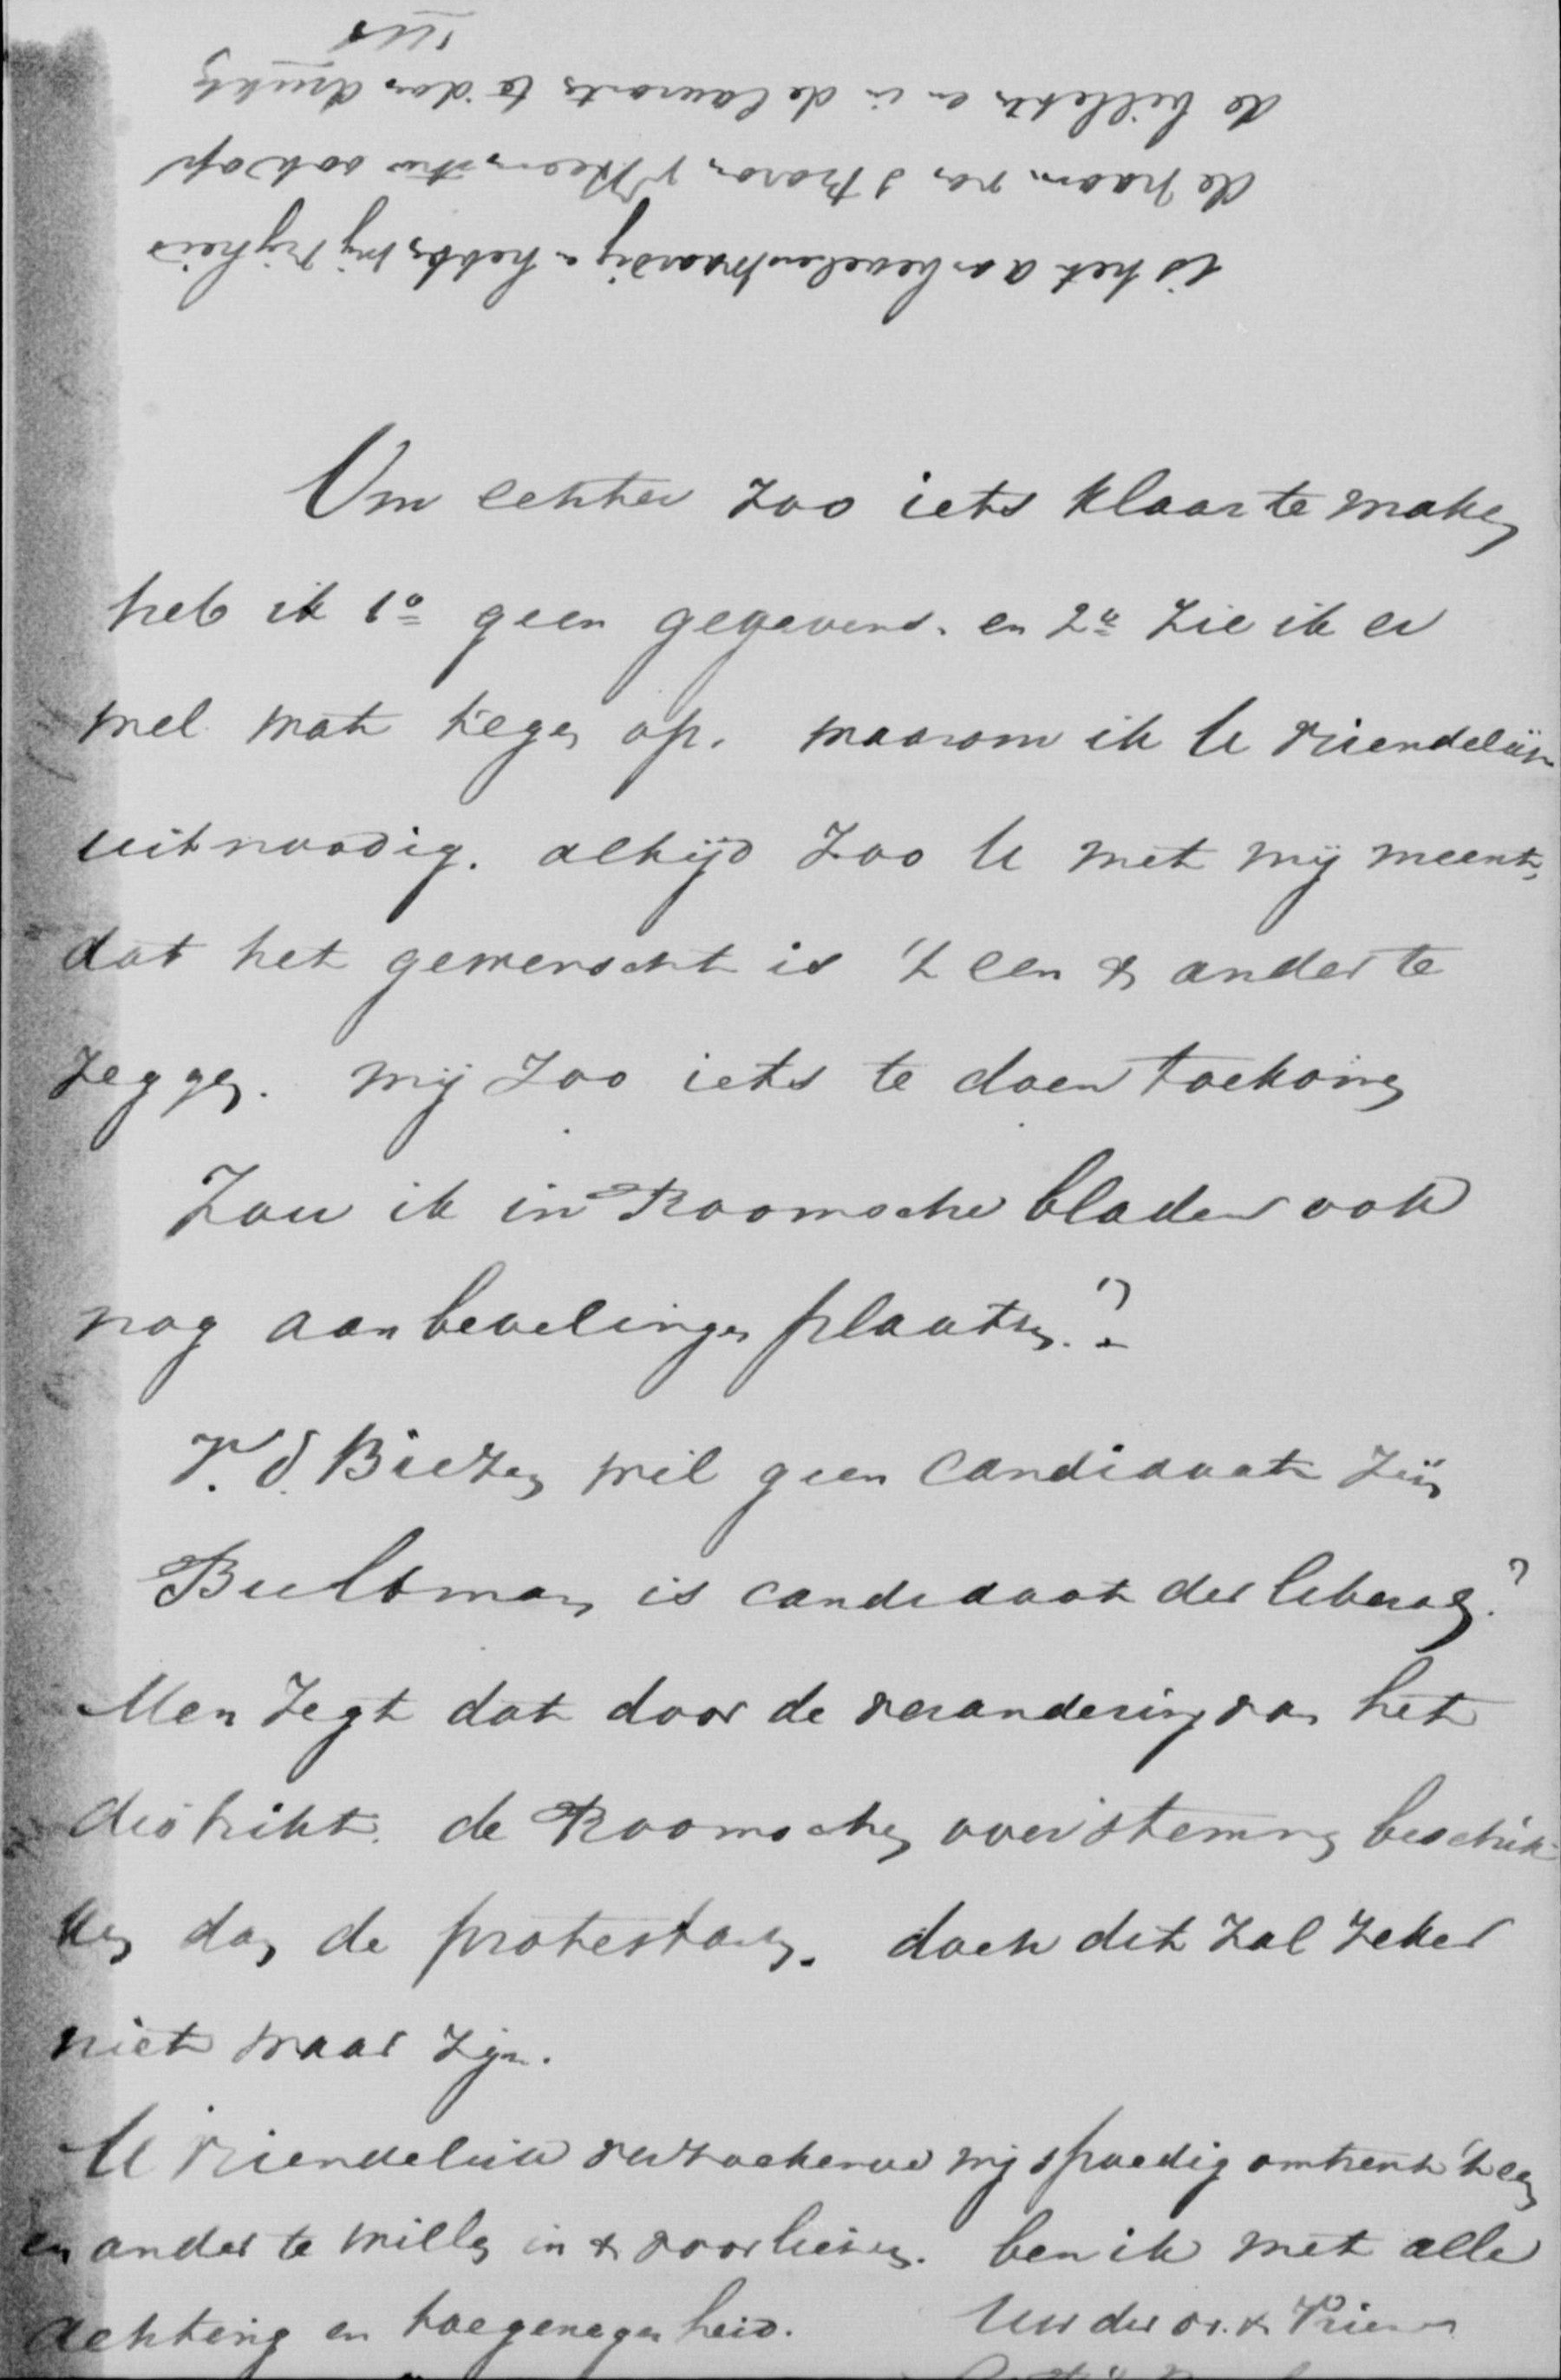 Om echter zoo iets klaar te maken
heb ik 1o geen gegevens. en 2o zie ik er
wel wat tegen op. waarom ik U vriendelijk
uitnoodig. altijd zoo U met mij meent,
dat het gewenscht is 't een & ander te
zeggen. mij zoo iets te doen toekomen
Zou ik in Roomsche bladen ook
nog aanbevelingen plaatsen?
V. d. Biezen wil geen candidaat zijn
Bultman is candidaat der liberalen?
Men zegt dat door de verandering van het
distrikt. de Roomschen over stemmen beschik-
ken dan de protestanten. doch dit zal zeker
niet waar zijn.
U vriendelijk verzoekende mij spoedig omtrent 't een
en ander te willen in & voorlichten. ben ik met alle
achting en toegenegenheid. Uw der. & Vriend
is het aanbevelenswaardig en hebben wij vrijheid
de naam van ook op
de billetten en in de couranten te doen drukken